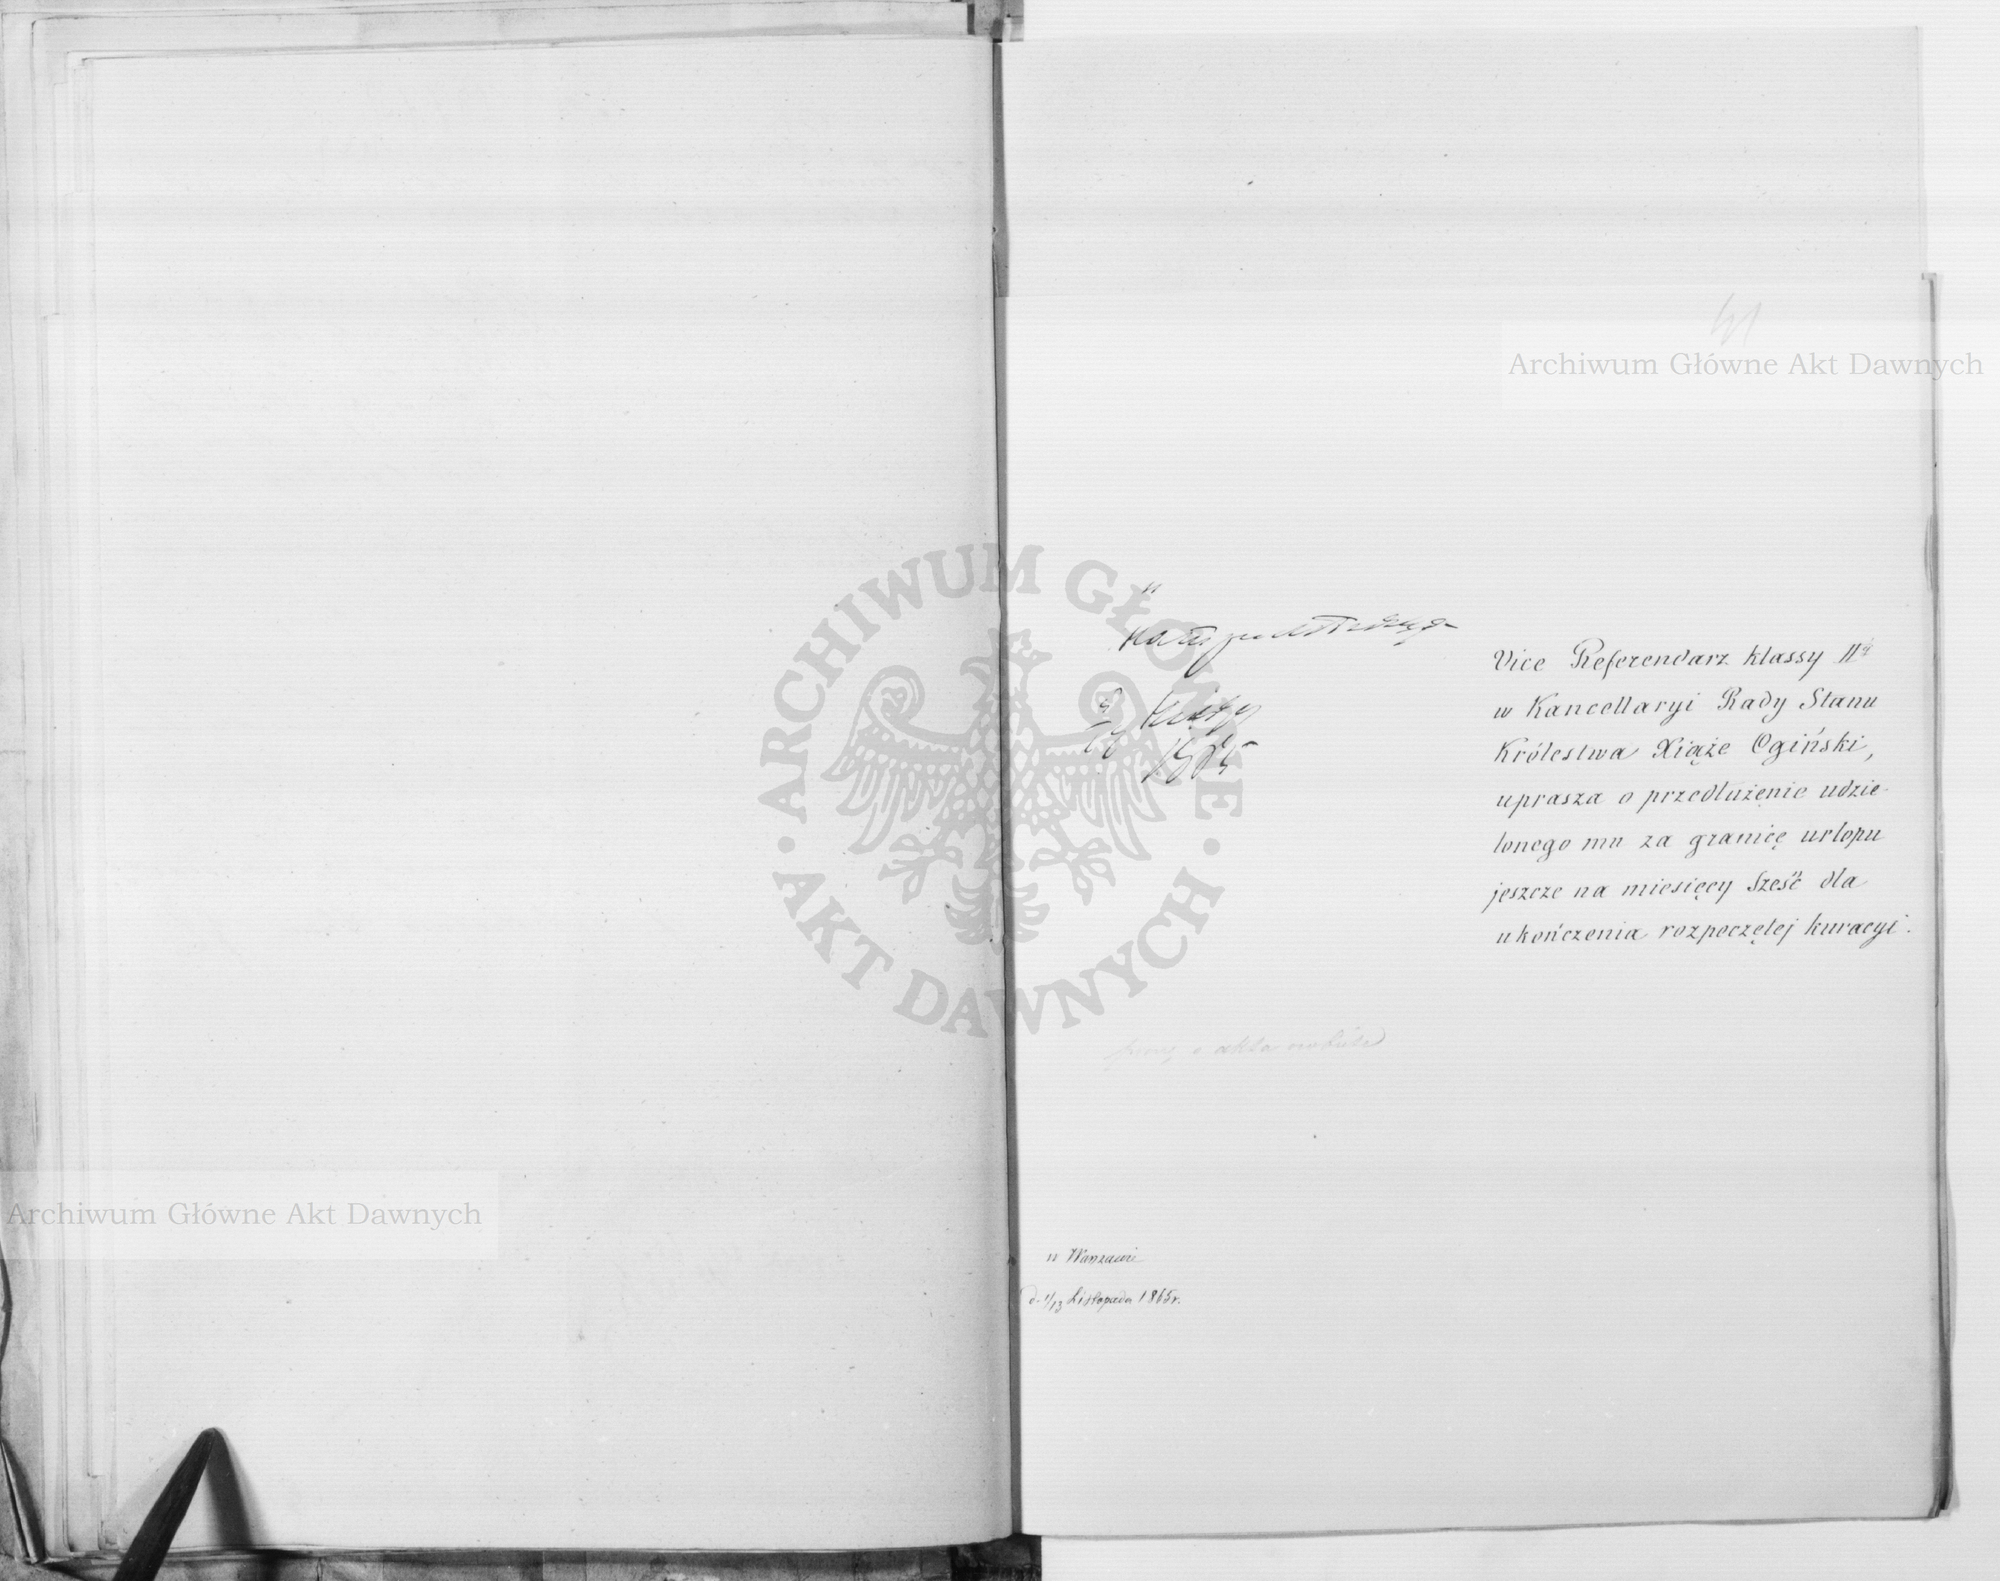 41
Vice Referendarz klassy IIej
w Kancellaryi Rady Stanu
Królestwa Xiąże Ogiński,
uprasza o przedłużenie udzie-
lonego mu za granicę urlopu
jeszcze na miesięcy sześć dla
ukończenia rozpoczętej kuracyi.
1865
akta
w Warszawie
d. 1/13 Listopada 1865 r.
Archiwum Główne Akt Dawnych
Archiwum Główne Akt Dawnych
ARCHIWUM GŁÓWNE
AKT DAWNYCH